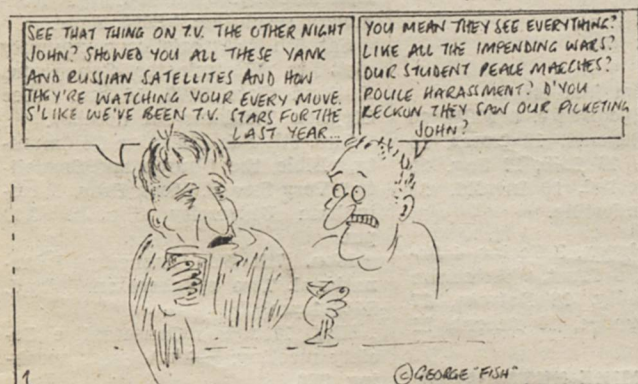 SEE THAT THING ON T.V. THE OTHER NIGHT
JOHN? SHOWED YOU ALL THESE YANK
AND RUSSIAN SATELLITES AND HOW
THEY'RE WATCHING YOUR EVERY MOVE.
S'LIKE WE'VE BEEN T.V. STARS FOR THE
LAST YEAR...
YOU MEAN THEY SEE EVERYTHING?
LIKE ALL THE IMPENDING WARS?
OUR STUDENT PEACE MARCHES?
POLICE HARASSMENT? D'YOU
RECKON THEY SAW OUR PICKETING
JOHN?
1
© GEORGE "FISH"